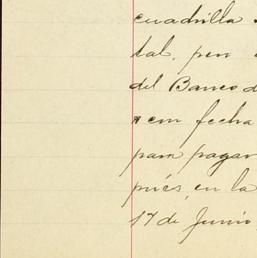 cuadrilla
tal, pen
del Banco d
em fecha
para pagar
pués, en la
17 de Junio